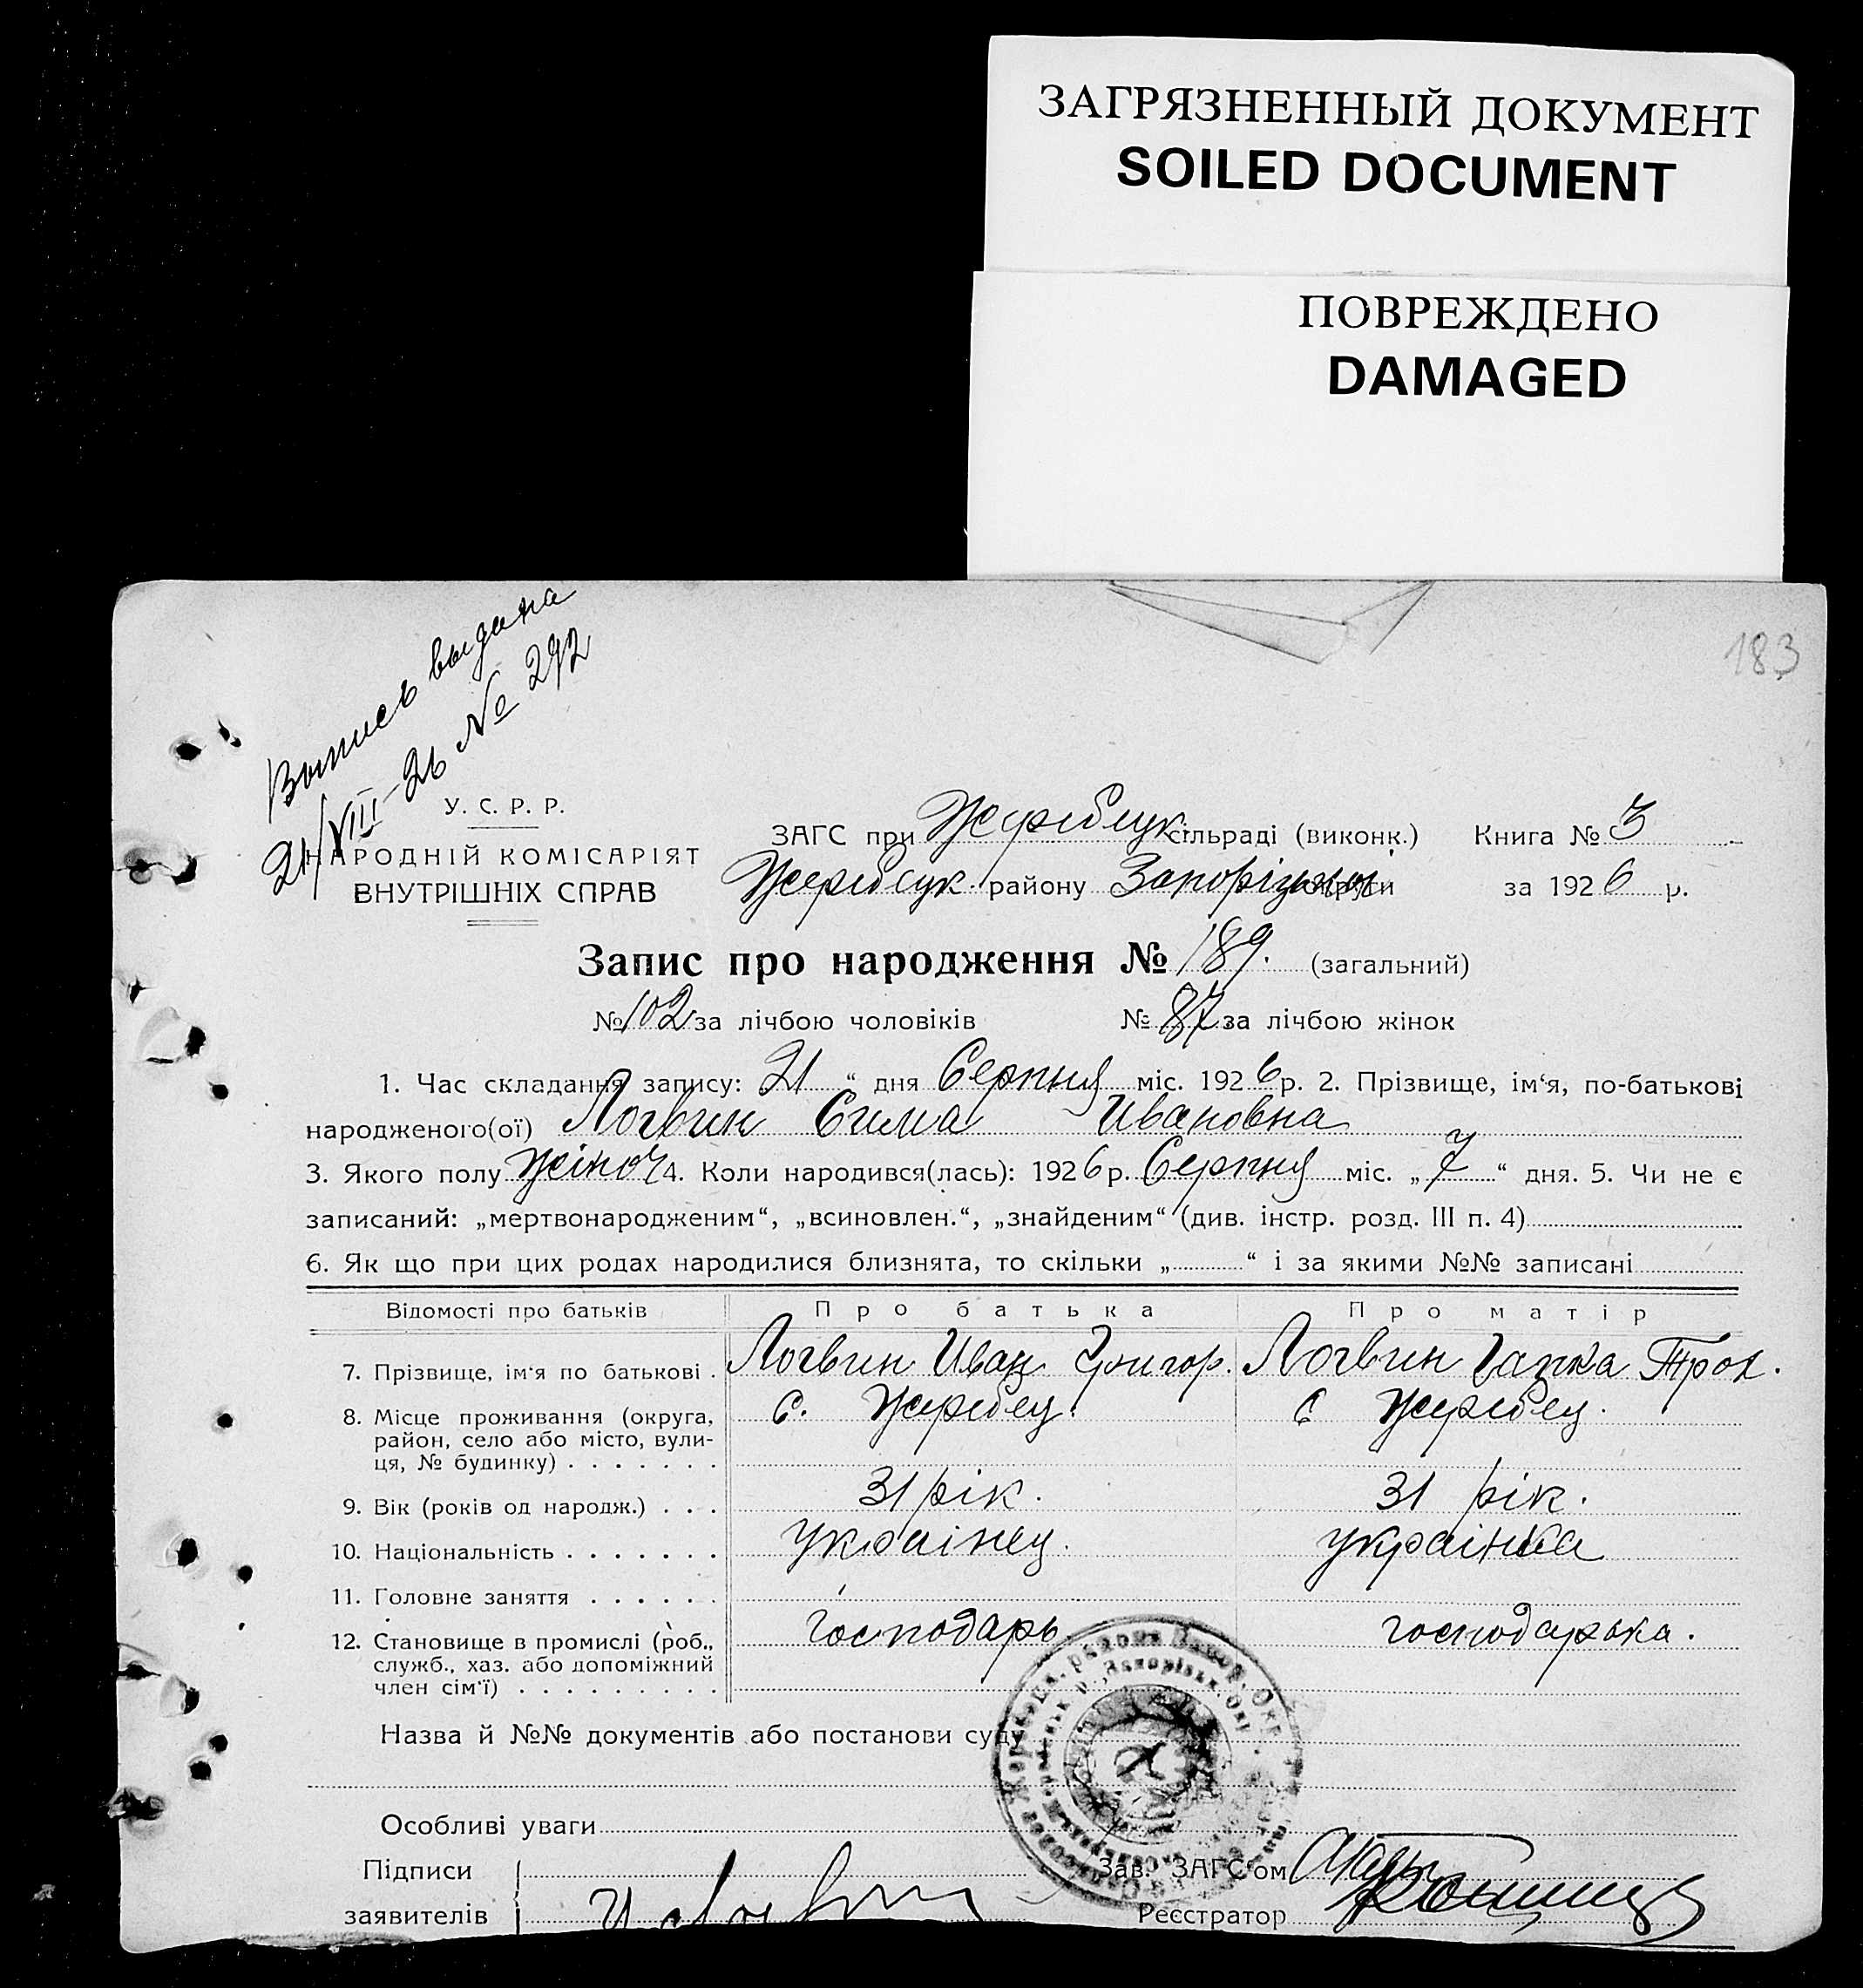 ЗАГРЯЗНЕННЫЙ ДОКУМЕНТ
SOILED DOCUMENT
ПОВРЕЖДЕНО
DAMAGED
183
Выпись выдана
21/VIII-26 № 292
У. С. Р. Р.
НАРОДНІЙ КОМІСАРІЯТ
ВНУТРІШНІХ СПРАВ
ЗАГС при Жеребецк. сільраді (виконк.) Книга № 3
Жеребецк. району Запоріцької округи за 1926 р.
Запис про народження № 189. (загальний)
№ 102 за лічбою чоловіків № 87 за лічбою жінок
1. Час складання запису: 21 “ дня Серпня міс. 1926 р. 2. Прізвище, ім‘я, по-батькові
народженого(ої) Логвин Сима Ивановна
3. Якого полу жіноч 4. Коли народився(лась): 1926 р. Серпня міс. „7“ дня. 5. Чи не є
записаний: „мертвонародженим“, „всиновлен.“, „знайденим“ (див. інстр. розд. III п. 4)
6. Як що при цих родах народилися близнята, то скільки „ “ і за якими №№ записані
Відомості про батьків Про батька Про матір
7. Прізвище, ім‘я по батькові . Логвин Иван Григор. Логвин Гапка Трох.
8. Місце проживання (округа, с. Жеребец. с Жеребец.
район, село або місто, вули-
ця, № будинку) . . . . . . .
9. Вік (років од народж.) . . . 31 рік. 31 рік.
10. Національність . . . . . . . українец. українка
11. Головне заняття . . . . . .
12. Становище в промислі (роб., господарь господарька.
служб., хаз. або допоміжний
член сім‘ї) . . . . . . . . .
Назва й №№ документів або постанови суду
Особливі уваги
Підписи Зав. ЗАГС‘ом
заявителів Реєстратор